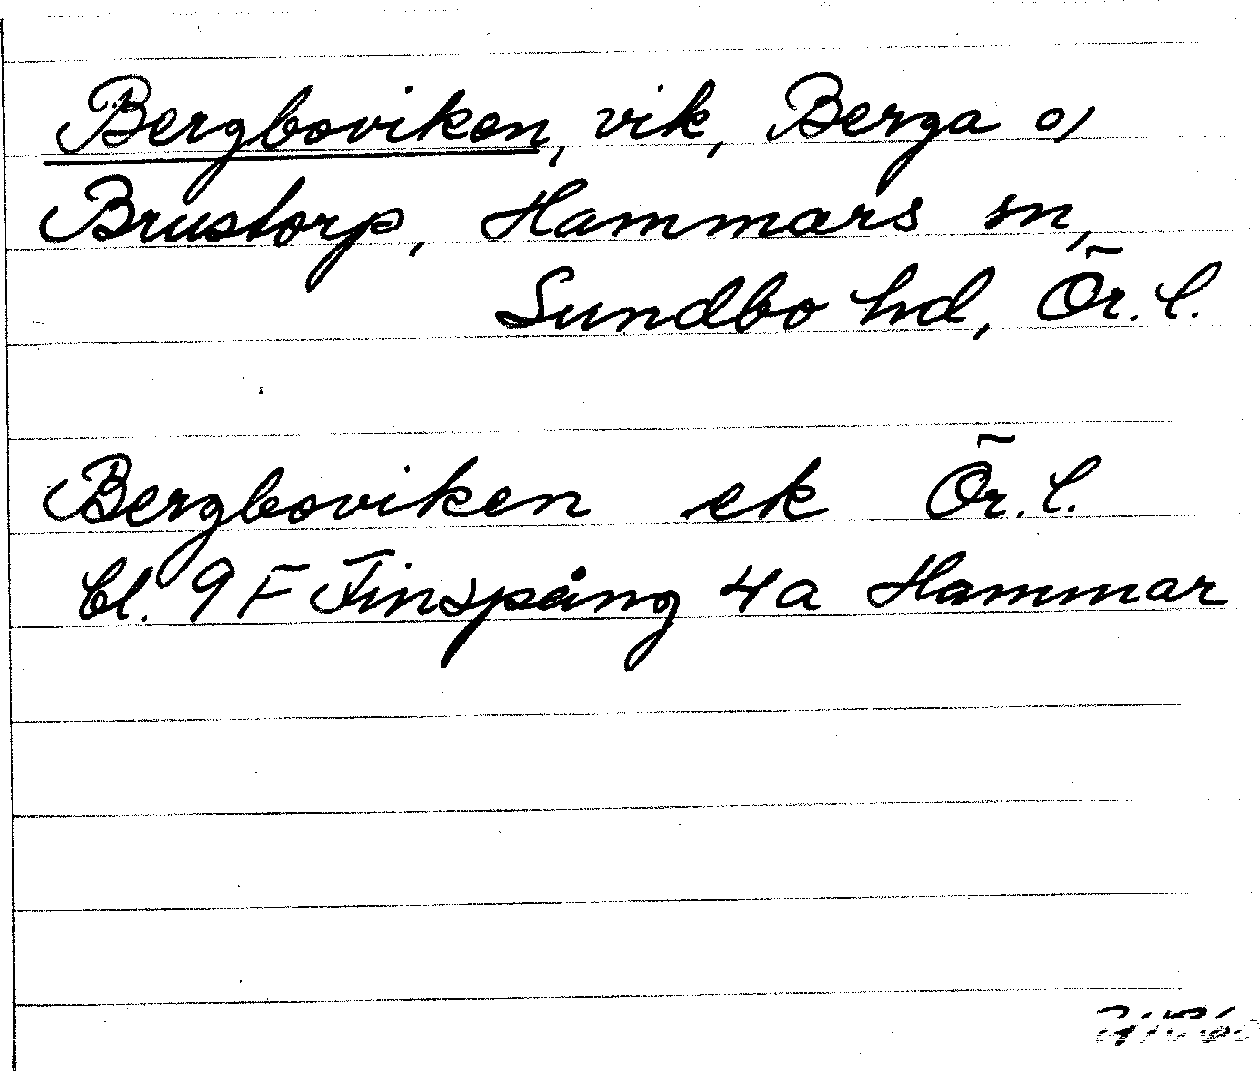 Bergboviken, vik, Berga o/
Brustorp, Hammars sn,
Sundbo hd, Ör. l.
Bergboviken ek Ör. l.
Bl. 9 F Finspång 4a Hammar